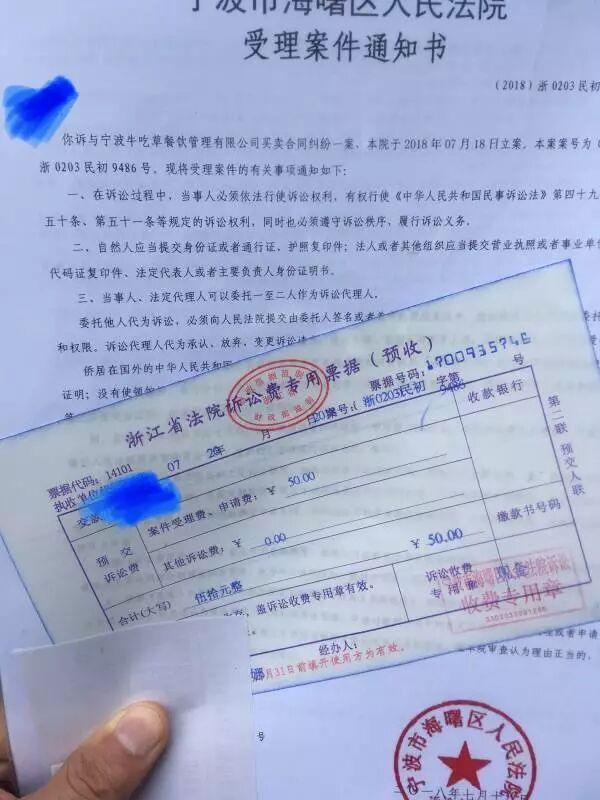 宁波市海曙区人民法院
受理案件通知书
(2018)浙 0203 民初
你诉与宁波牛吃草餐饮管理有限公司买卖合同纠纷一案,本院于 2018 年 07 月 18 日立案。本案案号为
浙 0203 民初 9486 号。现将受理案件的有关事项通知如下:
一、在诉讼过程中,当事人必须依法行使诉讼权利,有权行使《中华人民共和国民事诉讼法》第四十九
五十条、第五十一条等规定的诉讼权利,同时也必须遵守诉讼秩序、履行诉讼义务。
二、自然人应当提交身份证或者通行证、护照复印件;法人或者其他组织应当提交营业执照或者事业单位
代码证复印件、法定代表人或者主要负责人身份证明书。
三、当事人、法定代理人可以委托一至二人作为诉讼代理人。
委托他人代为诉讼,必须向人民法院提交由委托人签名或者
和权限。诉讼代理人代为承认、放弃、变更诉讼请
侨居在国外的中华人民共和国
证明;没有使领馆
浙江省法院诉讼费专用票据(预收)
票据号码:1700935746 号
票据代码:14101
执收单位
07
20
年 月 日
案号:( 浙0203民初 字第 9486
收款银行
第二联 预交人联
交款
预交
诉讼费
案件受理费、申请费:¥ 50.00
其他诉讼费:¥ 0.00
¥ 50.00
缴款书号码
合计(大写) 伍拾元整
诉讼收费
专用章
现金
收费专用章
盖诉讼收费专用章有效。
经办人:
月31日前填开使用方为有效。
本院审查认为理由正当的,
号
宁波市海曙区人民法院
二〇一八年七月十